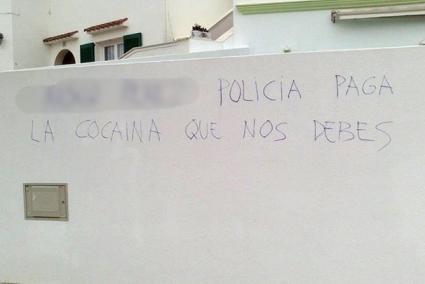 POLICIA PAGA
LA COCAINA QUE NOS DEBES